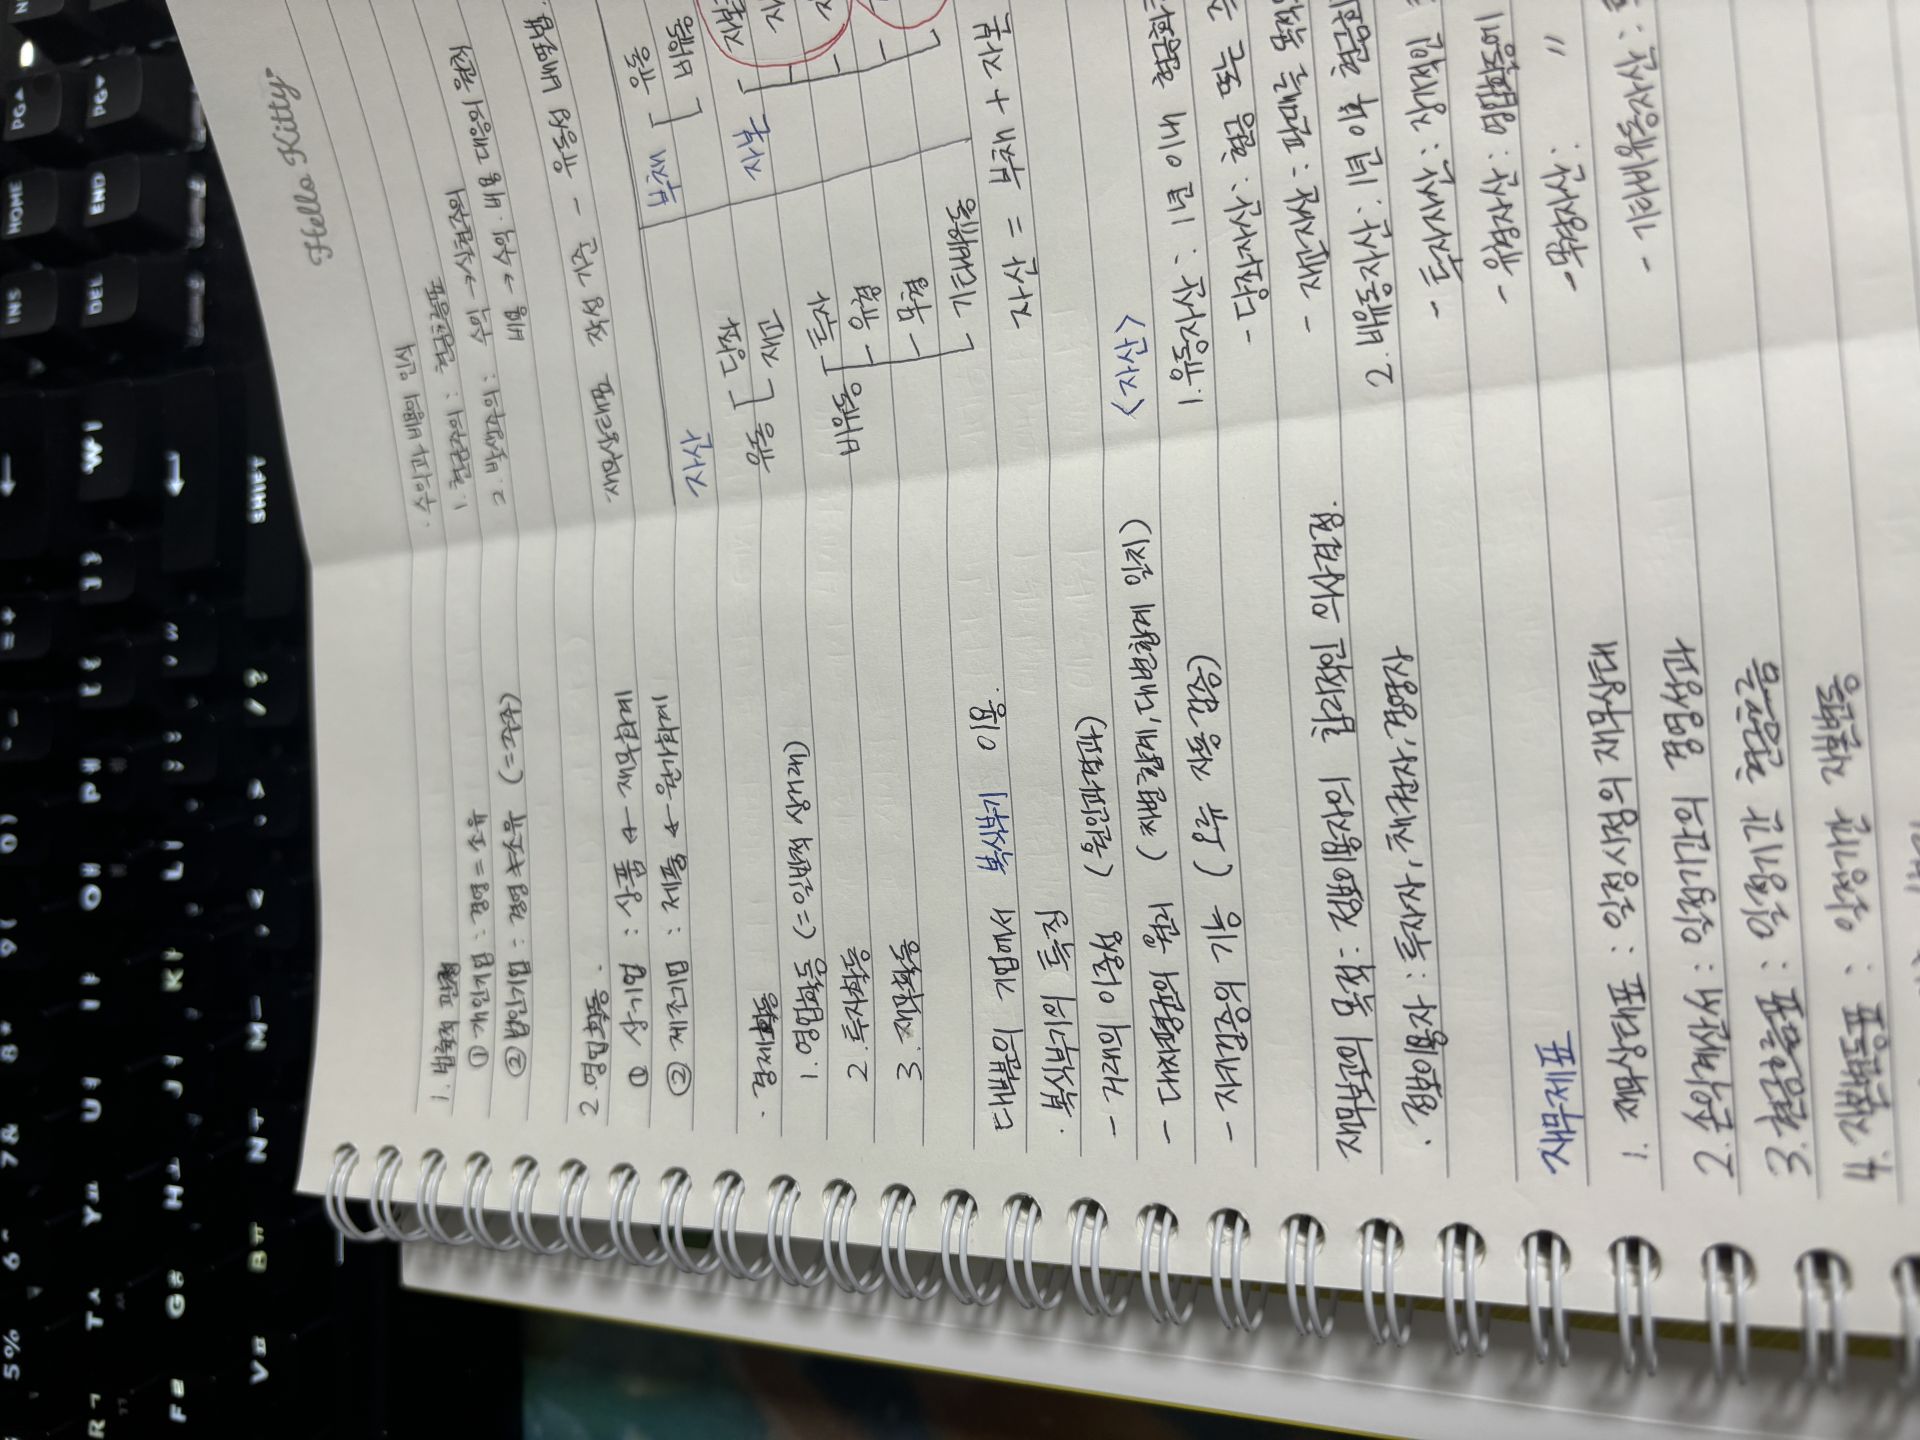 Hello Kitty
1. 법률적 관점
① 개인기업 : 경영 = 소유
② 법인기업 : 경영 ≠ 소유 (=주주)
2. 영업활동.
① 상기업 : 상품 ← 재무회계
② 제조기업 : 제품 ← 원가회계
· 경제활동
1. 영업활동 (= 일반적 상거래)
2. 투자활동
3. 재무활동
대부분의 기업에서 복식부기 이용.
· 복식부기의 특징
- 거래의 이중성 (원인과 결과)
- 대차평균의 원리 (차변합계, 대변합계 일치)
- 자기검증의 기능 (오류 자동 검증)
재무보고의 목적: 정보이용자의 합리적인 의사결정.
· 정보이용자 : 투자자, 채권자, 경영자
재무제표
1. 재무상태표 : 일정시점의 재무상태
2. 손익계산서 : 일정기간의 경영성과
3. 현금흐름표 : 일정기간 현금흐름
4. 자본변동표 : 일정기간 자본변동
· 수익과 비용의 인식
1. 현금주의 : 현금흐름
2. 발생주의 : 수익 → 실현주의
비용 → 수익·비용 대응의 원칙
재무상태표 작성 기준 - 유동성 배열법.
자산
부채
유동
당좌
재고
비유동
투자
유형
무형
기타비유동
유동
비유동
자본
자산 = 부채 + 자본
<자산>
1. 유동자산 : 1년 이내 현금화
- 당좌자산 : 현금 또는
- 재고자산 : 판매를 목적
2. 비유동자산 : 1년 이후 현금화
- 투자자산 : 장기적인
- 유형자산 : 영업활동에
- 무형자산 : 〃
- 기타비유동자산 :
5% 6^ 7& 8* 9( 0)
INS HOME PG▲
DEL END PG▼
SHIFT